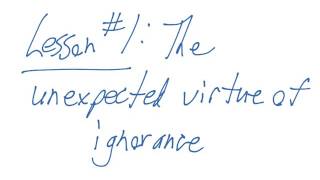 Lesson #1: The
unexpected virtue of
ignorance